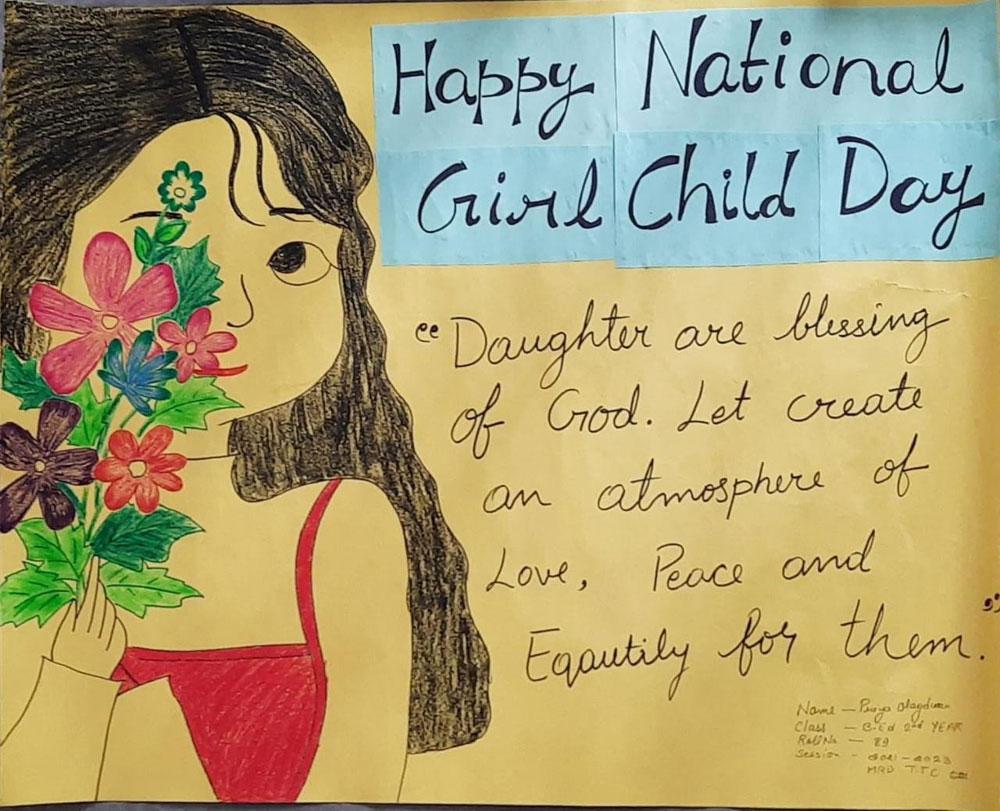 Happy National
Girl Child Day
“Daughter are blessing
of God. Let create
an atmosphere of
Love, Peace and
Eqautily for them.”
Name — Priya
Class — B.Ed 2nd YEAR
Roll No — 89
Session - 2021-2023
MRD TTC